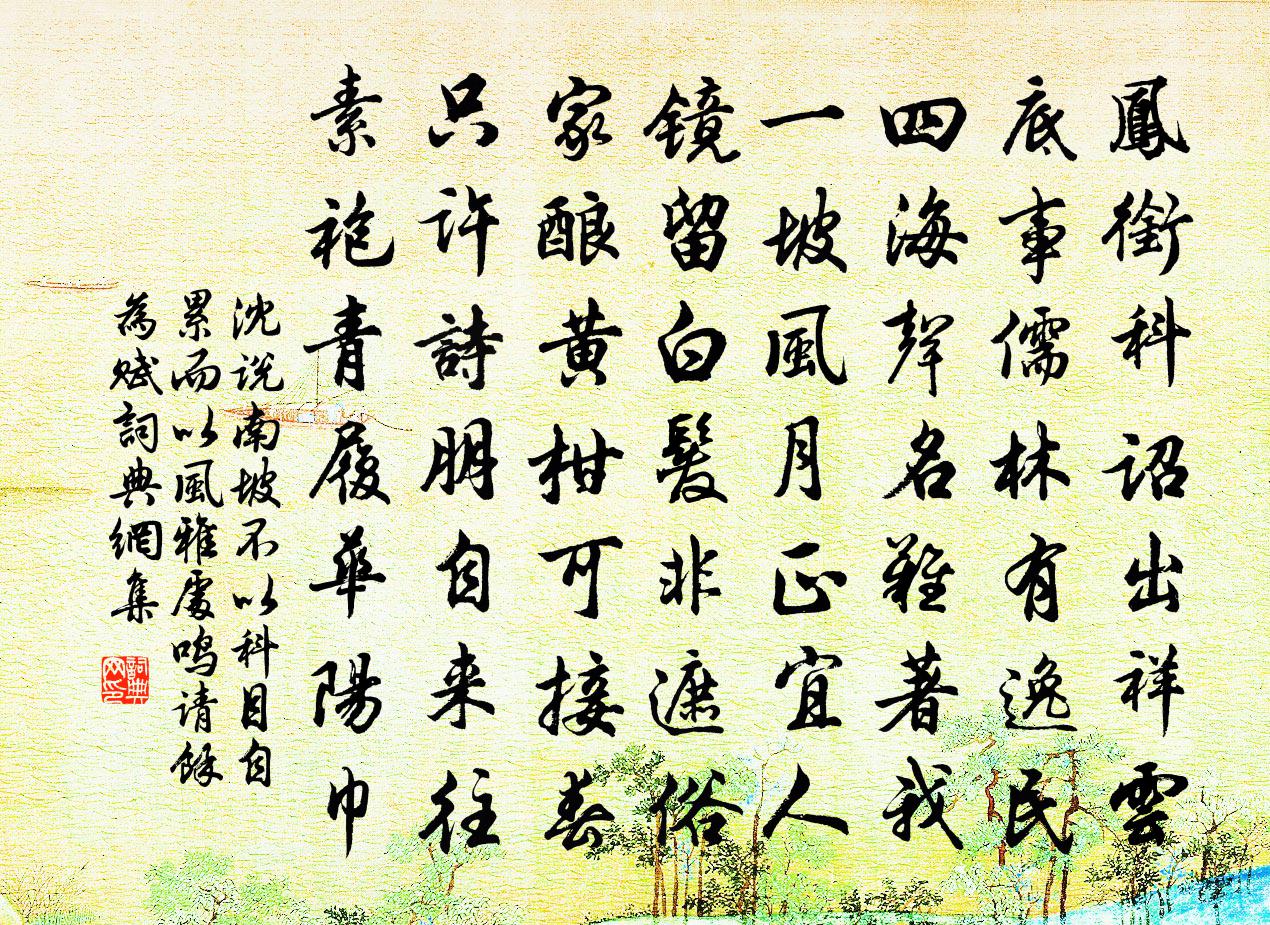 鳳銜科詔出祥雲
底事儒林有逸民
四海聲名難著我
一坡風月正宜人
镜留白髮非遮俗
家酿黄柑可接春
只許詩朋自来往
素袍青履華陽巾
沈说南坡不以科目自
累而以風雅處鸣请餘
為赋詞典網集
詞典网印